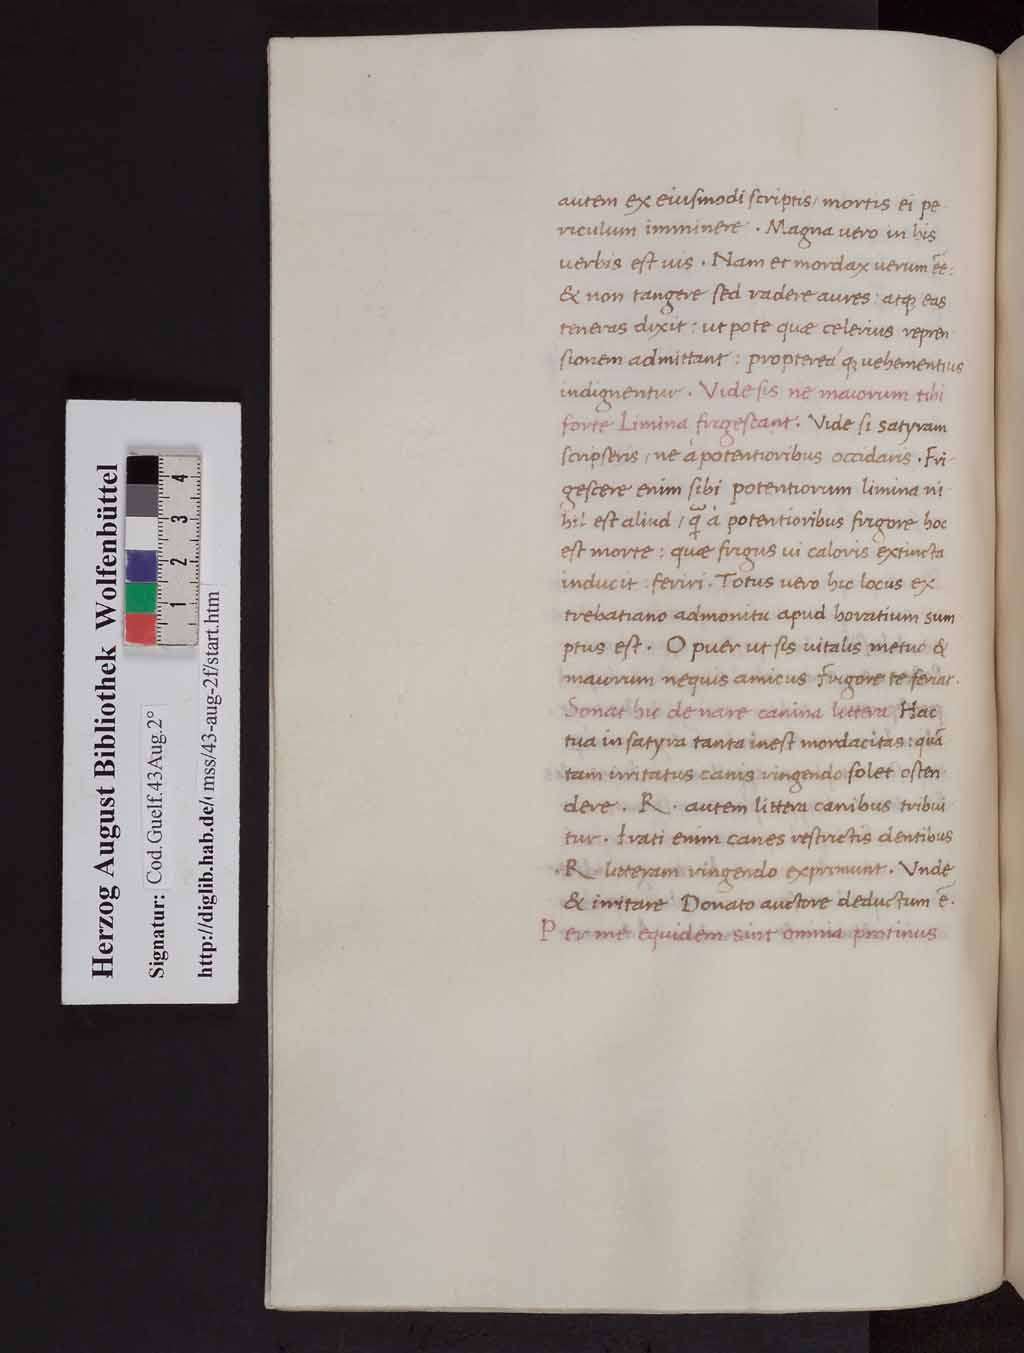 Herzog August Bibliothek Wolfenbüttel
Signatur: Cod.Guelf.43Aug.2°
http://diglib.hab.de/mss/43-aug-2f/start.htm
1 2 3 4
autem ex eiusmodi scriptis / mortis ei pe
riculum imminere . Magna uero in his
uerbis est uis . Nam et mordax uerum ēē:
& non tangere sed radere aures : atqꝫ eas
teneras dixit : ut pote quæ celerius repren
sionem admittant : propterea qꝫ uehementius
indignentur . Vide sis ne maiorum tibi
forte Limina frigescant . Vide si satyram
scripseris / ne à potentioribus occidaris . Fri
gescere enim sibi potentiorum limina ni
hil est aliud / q̃ à potentioribus frigore hoc
est morte : quæ frigus ui caloris extincta
inducit : feriri . Totus uero hic locus ex
trebatiano admonitu apud horatium sum
ptus est . O puer ut sis uitalis metuo &
maiorum nequis amicus Frigore te feriat .
Sonat hic de nare canina littera Hac
tua in satyra tanta inest mordacitas : quā
tam irritatus canis ringendo solet osten
dere . R . autem littera canibus tribui
tur . Irati enim canes restrictis dentibus
. R litteram ringendo exprimunt . Vnde
& irritare Donato auctore deductum ē .
Per me equidem sint omnia protinus